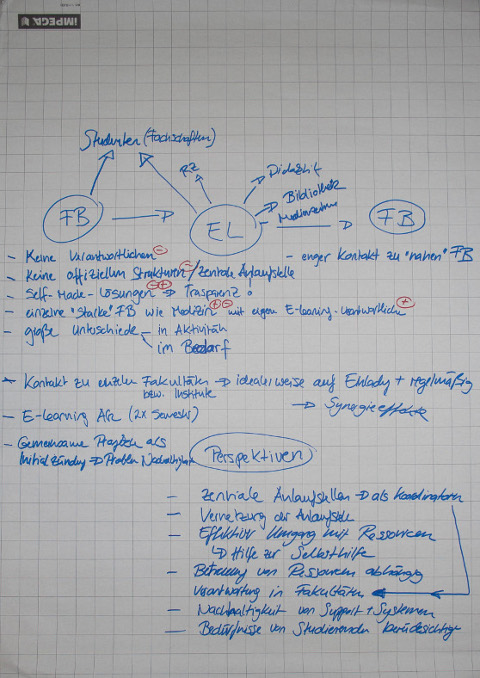 IMPEGA
Studenten (Fachschaften)
RZ
Didaktik
Bibliothek
Medienzentrum
FB
EL
FB
- enger Kontakt zu "nahen" FB
- Keine Verantwortlichen -
- Keine offiziellen Strukturen - / zentrale Anlaufstelle
- Self-Made-Lösungen -+ → Trasparenz!
- einzelne "starke" FB wie Medizin +- mit eigenen E-learning-Verantwortlichen +
- große Unterschiede - in Aktivität
im Bedarf
- Kontakt zu einzeln Fakultäten → idealerweise auf + regelmäßig
bzw. Institute
→ Synergieeffekte
- E-learning AK (2x Semester)
- Gemeinsame als
Initialzündung → Problem Nachhaltigkeit
Perspektiven
- Zentrale Anlaufstellen → als Koordinatoren
- Vernetzung der Anlaufstelle
- Effektiver Umgang mit Ressourcen
↳ Hilfe zur Selbsthilfe
- Betreuung von Ressourcen abhängig
Verantwortung in Fakultäten
- Nachhaltigkeit von Support + Systemen
- Bedürfnisse von Studierenden berücksichtige